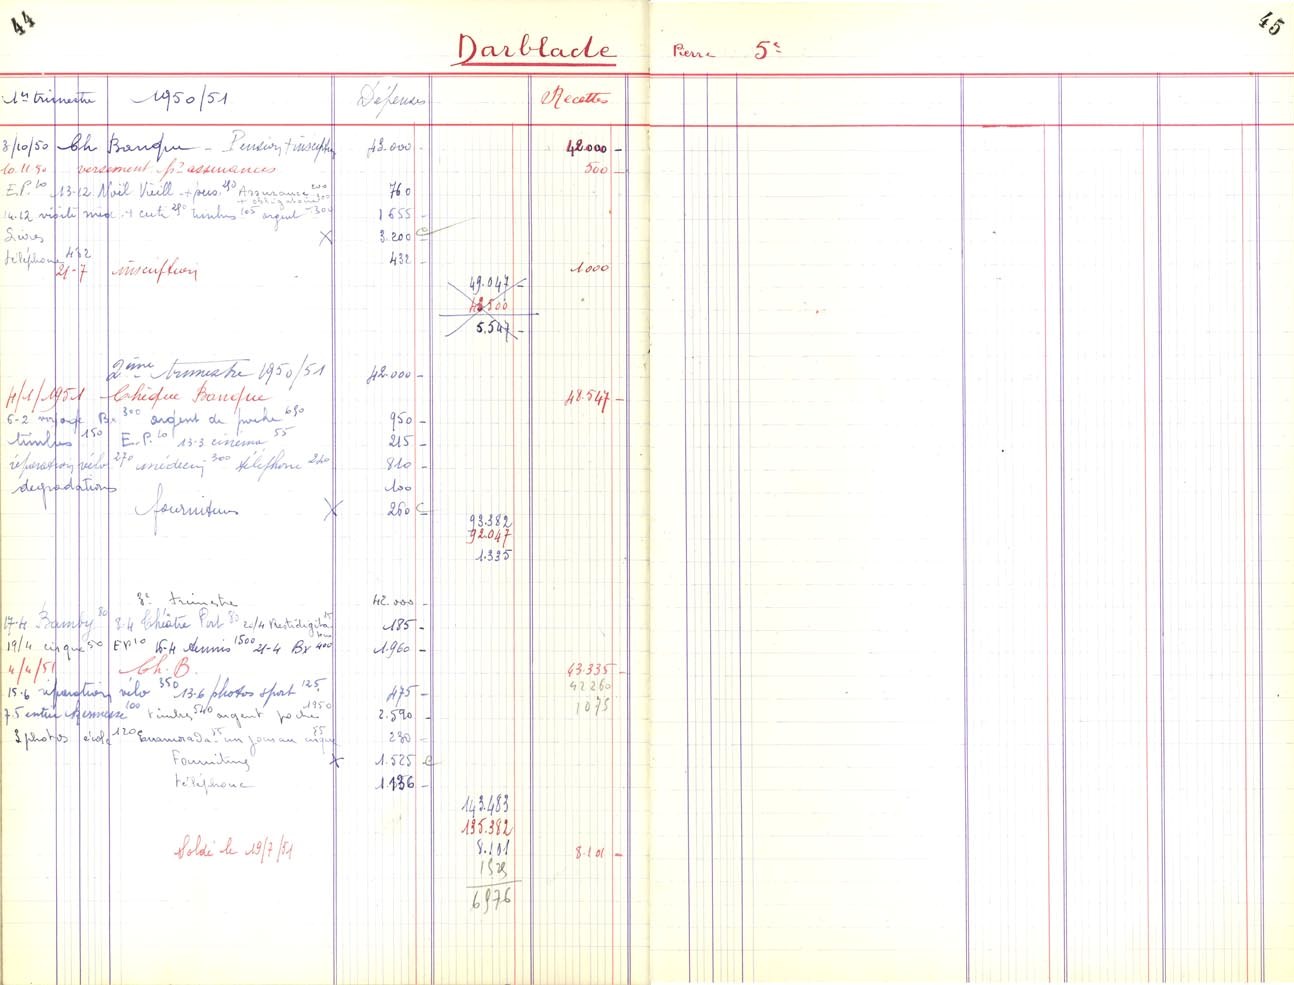 44
45
Darblade Pierre 5e
1er trimestre 1950/51 Dépenses Recettes
3/10/50 Ch Banque - Pension + inscription 43.000 - 42.000 -
10.11.50 versement pr assurances 500 -
E.P. 10 13-12 Noël Vieill. + pers. 290 Assurance 200 760
14.12 visite méd. + cuti 290 timbres 105 argent 1655 -
Livres X 3.200 C
téléphone 432 432 -
21-7 inscription 1000
49.047 -
43500
5.547 -
2ème trimestre 1950/51 42.000 -
4/1/1951 Chèque Banque 48.547 -
6-2 300 argent de poche 650 950 -
timbres 150 E.P. 10 13-3 cinéma 55 215 -
réparation vélo 270 médecin 300 téléphone 240 810 -
degradations 100
fournitures X 260 C
93.382
92.047
1.335
3e trimestre 42.000 -
17-4 Bamby 80 8.4 Théâtre Port 80 20/4 Prestidigita 25 185 -
19/4 cirque 50 EP 10 15-4 tennis 1500 21-4 Bx 400 1.960 -
4/4/51 Ch. B. 43.335 -
42260
1075
15.6 réparation vélo 350 13.6 photos sport 125 475 -
7.5 entrée kermesse 100 timbres 540 argent poche 1950 2.590 -
2 photos école 120 85 un jour au cirque 85 230 -
Fournitures X 1.525 C
téléphone 1.136 -
143.483
135.382
8.101
Soldé le 19/7/51 8.101 -
1525
6976